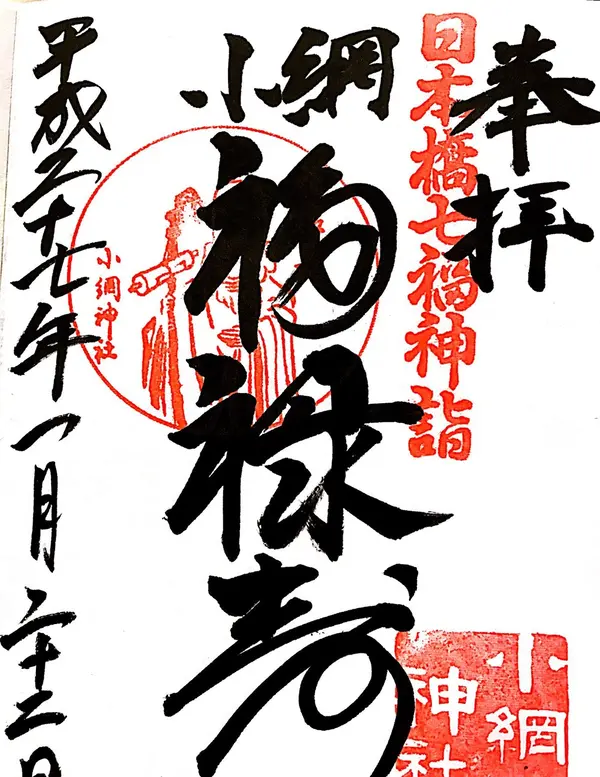 奉拝
日本橋七福神詣
小網
福禄寿
小網神社
小網神社
平成二十七年一月二十二日